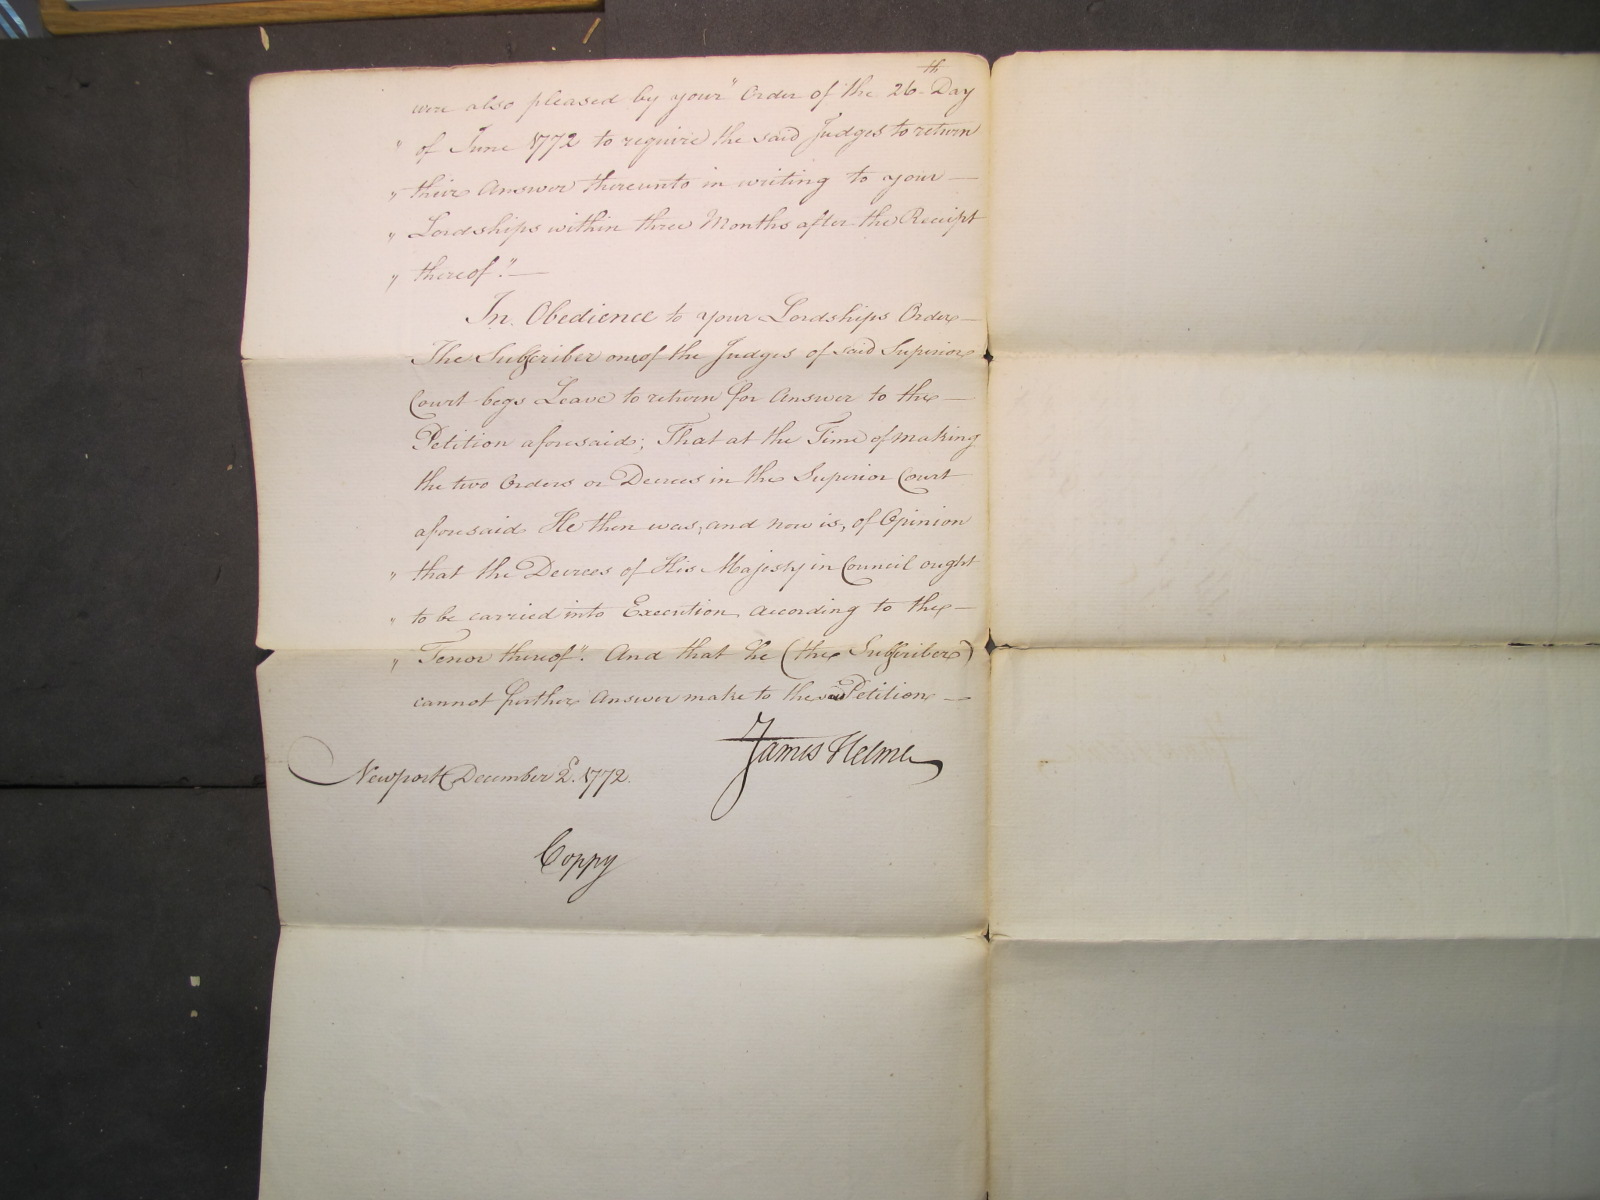 were also pleased by your" Order of the 26th Day
" of June 1772 to require the said Judges to return
" their Answer thereunto in writing to your —
" Lordships within three Months after the Receipt
" thereof." —
In Obedience to your Lordships Order —
The Subscriber one of the Judges of said Superior
Court begs Leave to return for Answer to the —
Petition aforesaid; That at the Time of making
the two Orders or Decrees in the Superior Court
aforesaid He then was, and now is, of Opinion
" that the Decrees of His Majesty in Council ought
" to be carried into Execution according to the —
" Tenor thereof". And that he (the Subscriber)
cannot further Answer make to the said Petition —
James Helme
Newport December 2d. 1772.
Coppy